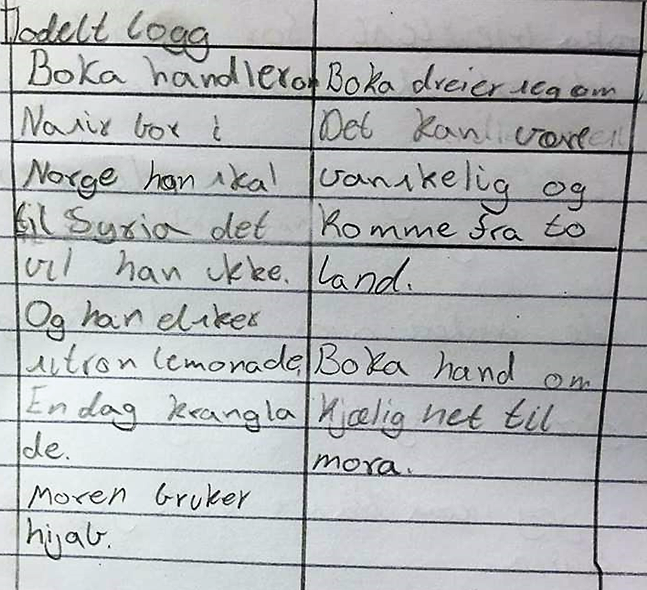 Todelt logg
Boka handler om
Nasir bor i
Norge han skal
til Syria det
vil han ikke.
Og han elsker
sitron lemonade,
En dag krangla
de.
Moren bruker
hijab.
Boka dreier seg om
Det kan være
vanskelig og
komme fra to
land.
Boka hand om
kjælig het til
mora.